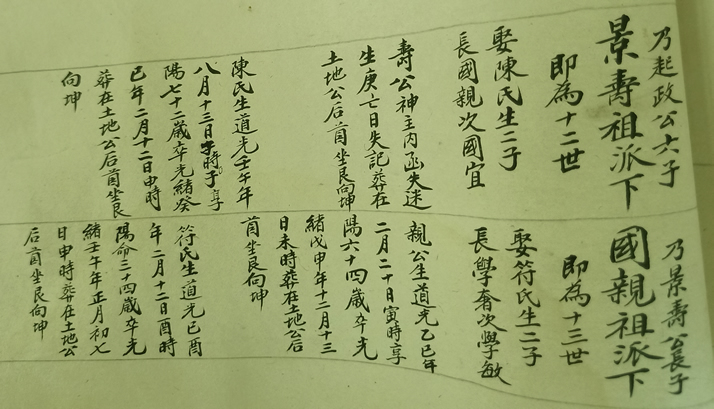 乃起政公六子
景壽祖派下
即為十二世
娶陳氏生二子
長國親次國宜
壽公神主內函失迷
生庚亡日失記葬在
土地公后首坐艮向坤
陳氏生道光壬午年
八月十三日子時享
陽七十二歲卒光緒癸
巳年二月十二日申時
葬在土地公后首坐艮
向坤
乃景壽公長子
國親祖派下
即為十三世
娶符氏生二子
長學奢次學敏
親公生道光乙巳年
二月二十日寅時享
陽六十四歲卒光
緒戊申年十二月十三
日未時葬在土地公后
首坐艮向坤
符氏生道光己酉
年二月十二日酉時
陽命三十四歲卒光
緒壬午年正月初七
日申時葬在土地公
后首坐艮向坤